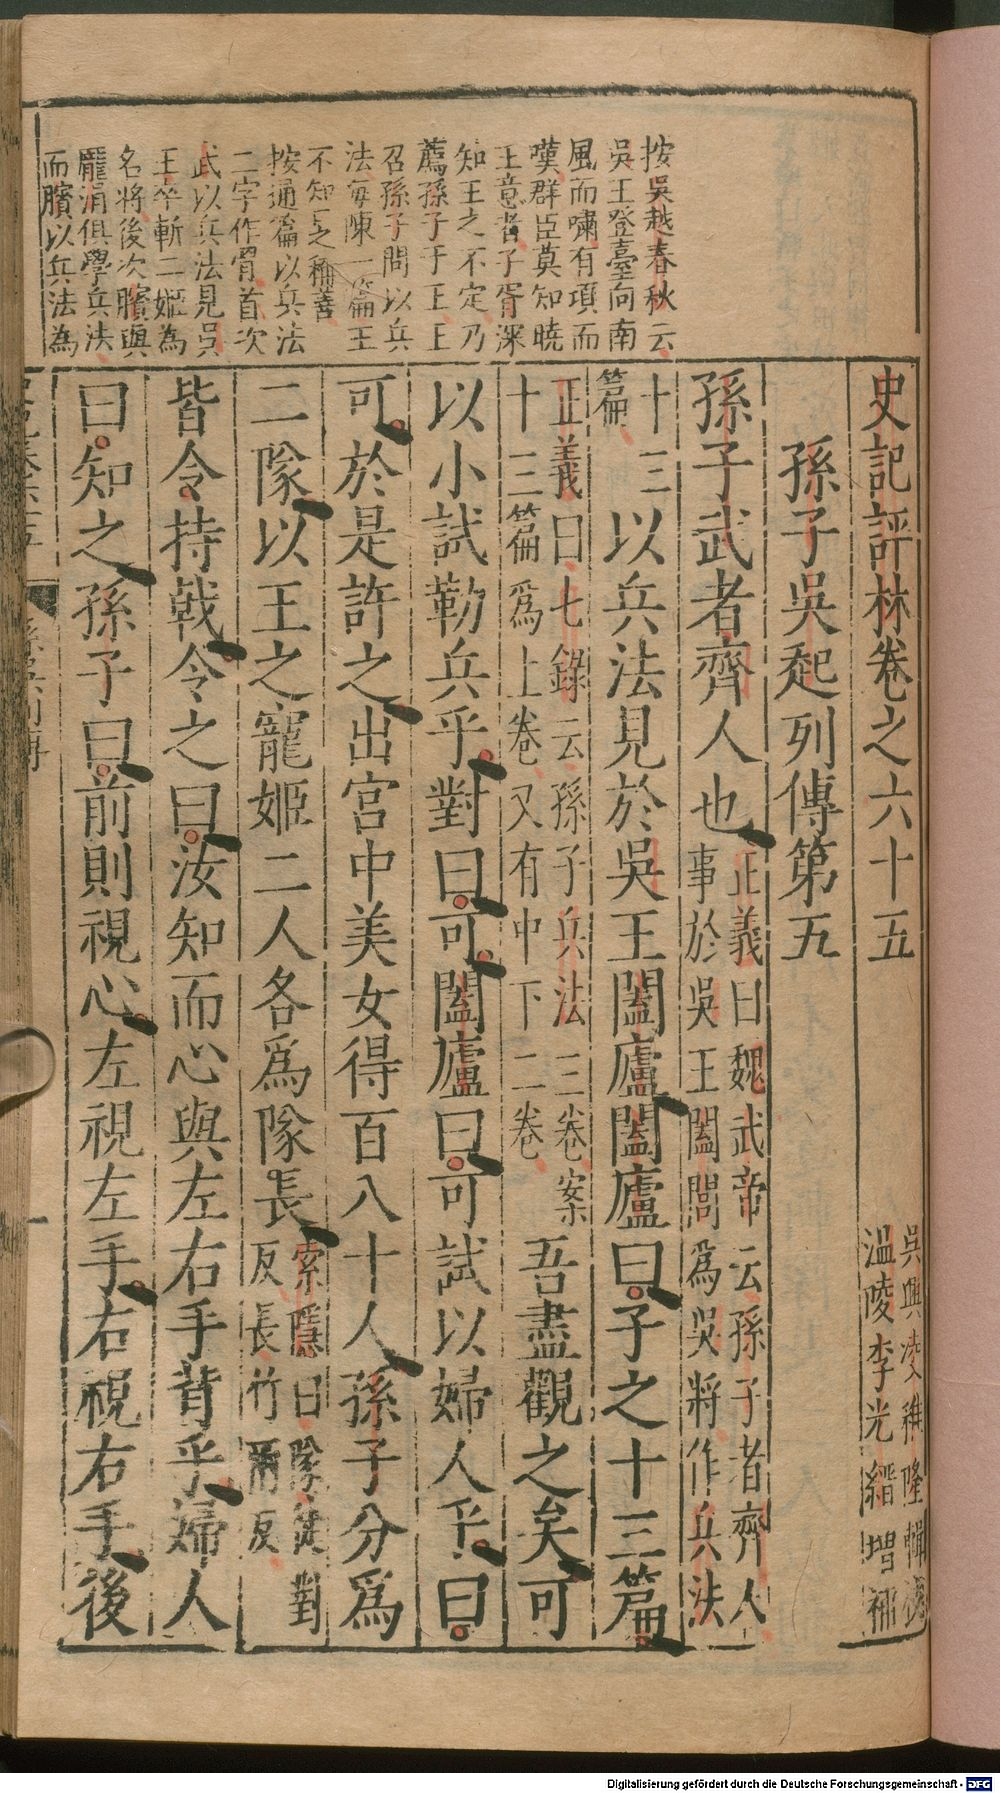 史記評林卷之六十五
吳興凌稚隆輯校
溫陵李光縉增補
孫子吳起列傳第五
孫子武者齊人也
正義曰魏武帝云孫子者齊人
事於吳王闔閭為吳將作兵法
十三
篇
以兵法見於吳王闔廬闔廬曰子之十三篇
正義曰七錄云孫子兵法三卷案
十三篇爲上卷又有中下二卷
吾盡觀之矣可
以小試勒兵乎對曰可闔廬曰可試以婦人乎曰
可於是許之出宮中美女得百八十人孫子分爲
二隊以王之寵姬二人各爲隊長
索隱曰隊徒對
反長竹兩反
皆令持戟令之曰汝知而心與左右手背乎婦人
曰知之孫子曰前則視心左視左手右視右手後
按吳越春秋云
吳王登臺向南
風而嘯有項而
嘆群臣莫知曉
王意者子胥深
知王之不定乃
薦孫子于王王
召孫子問以兵
法每陳一篇王
不知足稱善
按通篇以兵法
二字作冒首次
武以兵法見吳
王卒斬二姬為
名將後次臏與
龐涓俱學兵法
而臏以兵法為
一
Digitalisierung gefördert durch die Deutsche Forschungsgemeinschaft - DFG